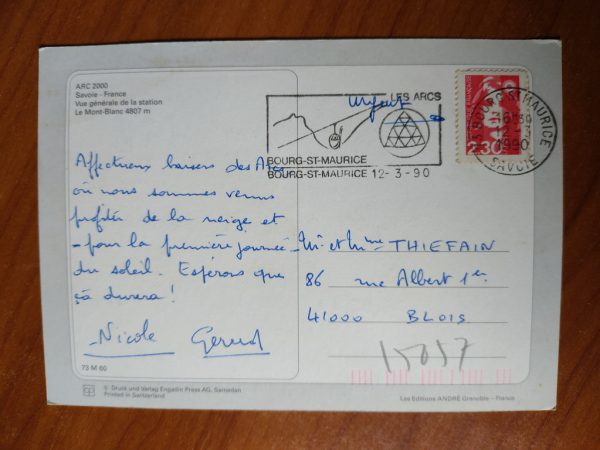 ARC 2000
Savoie - France
Vue générale de la station
Le Mont-Blanc 4807 m
LES ARCS
urgent
BOURG-ST-MAURICE
BOURG-ST-MAURICE 12-3-90
2.30
73 BOURG ST MAURICE
16H30
12-3
1990
SAVOIE
Affectueux baisers des Arcs
où nous sommes venus
profiter de la neige et
- pour la première journée -
du soleil. Espérons que
çà durera !
Nicole Gerard
Mr et Mme THIEFAIN
86 rue Albert 1er
41000 BLOIS
73 M 60
© Druck und Verlag Engadin Press AG, Samedan
Printed in Switzerland
Les Editions ANDRÉ Grenoble - France